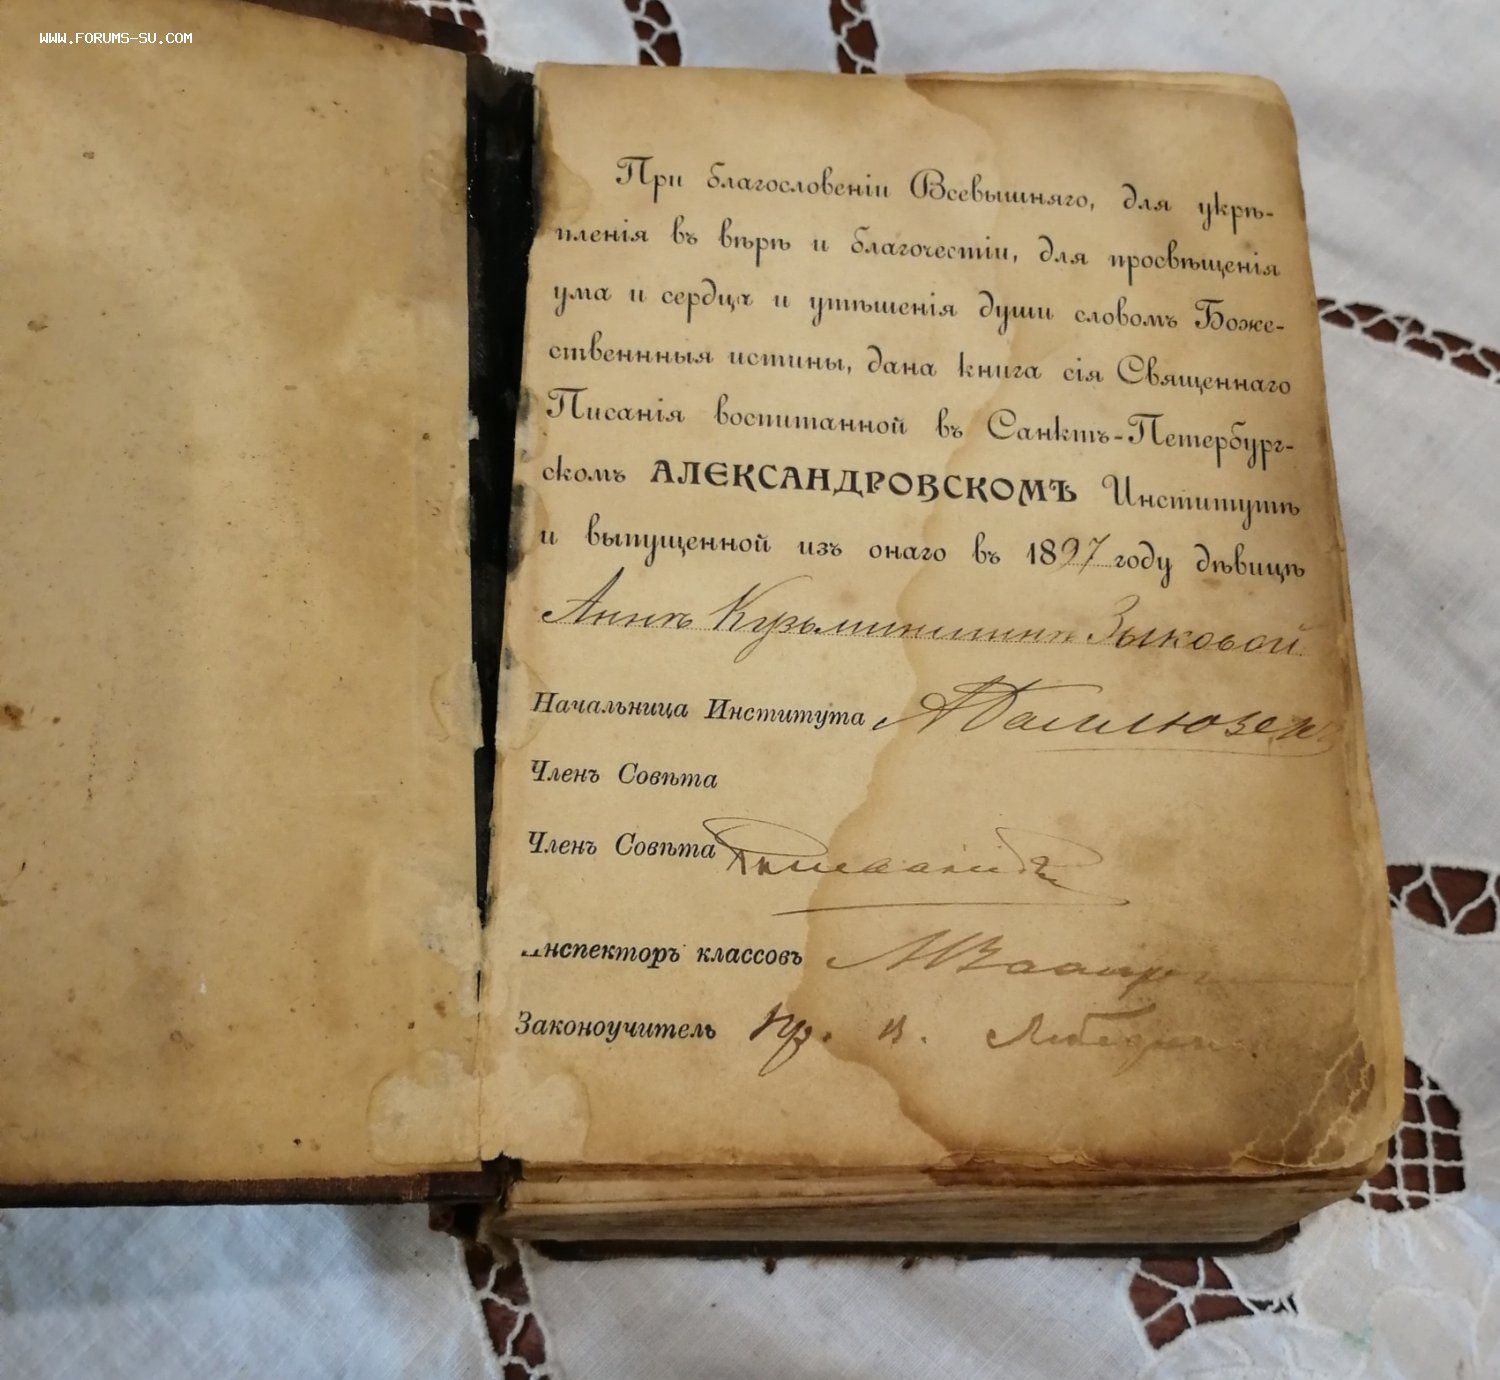 WWW.FORUMS-SU.COM
При благословеніи Всевышняго, для укрѣ-
пленія въ вѣрѣ и благочестіи, для просвѣщенія
ума и сердца и утѣшенія души словомъ Боже-
ственнныя истины, дана книга сія Священнаго
Писанія воспитанной въ Санктъ-Петербург-
скомъ АЛЕКСАНДРОВСКОМЪ Институтѣ
и выпущенной изъ онаго въ 1897 году дѣвицѣ
Аннѣ Кузьминишнѣ Зыковой
Начальница Института
Членъ Совѣта
Членъ Совѣта
Инспекторъ классовъ
Законоучитель Пр. В.